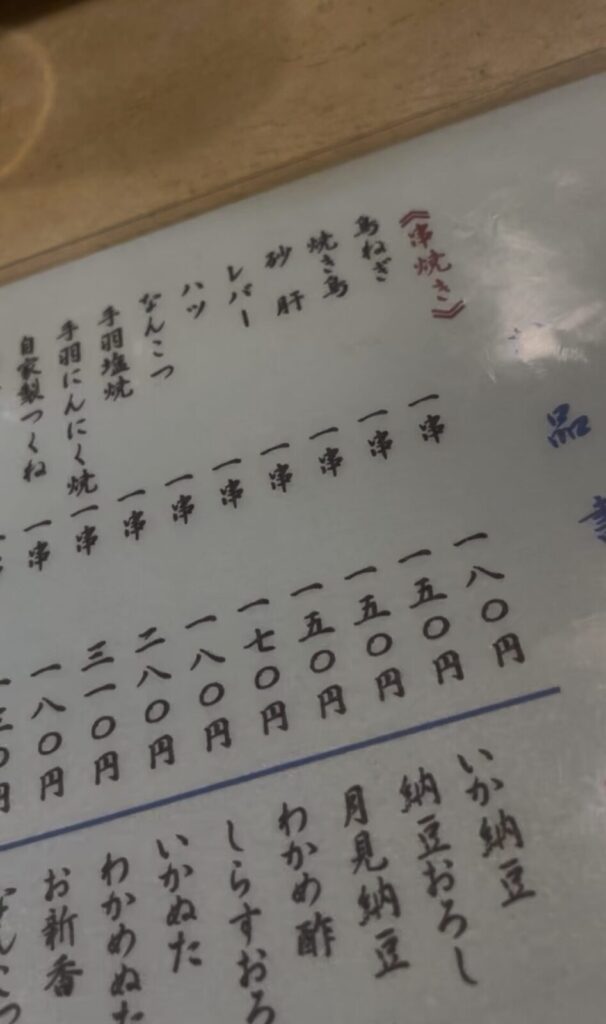 品
《串焼き》
鳥ねぎ 一串 一八〇円
焼き鳥 一串 一五〇円
砂肝 一串 一五〇円
レバー 一串 一五〇円
ハツ 一串 一七〇円
なんこつ 一串 一八〇円
手羽塩焼 一串 二八〇円
手羽にんにく焼 一串 三一〇円
自家製つくね 一串 一八〇円
一三〇円
いか納豆
納豆おろし
月見納豆
わかめ酢
しらすおろ
いかぬた
わかめぬた
お新香